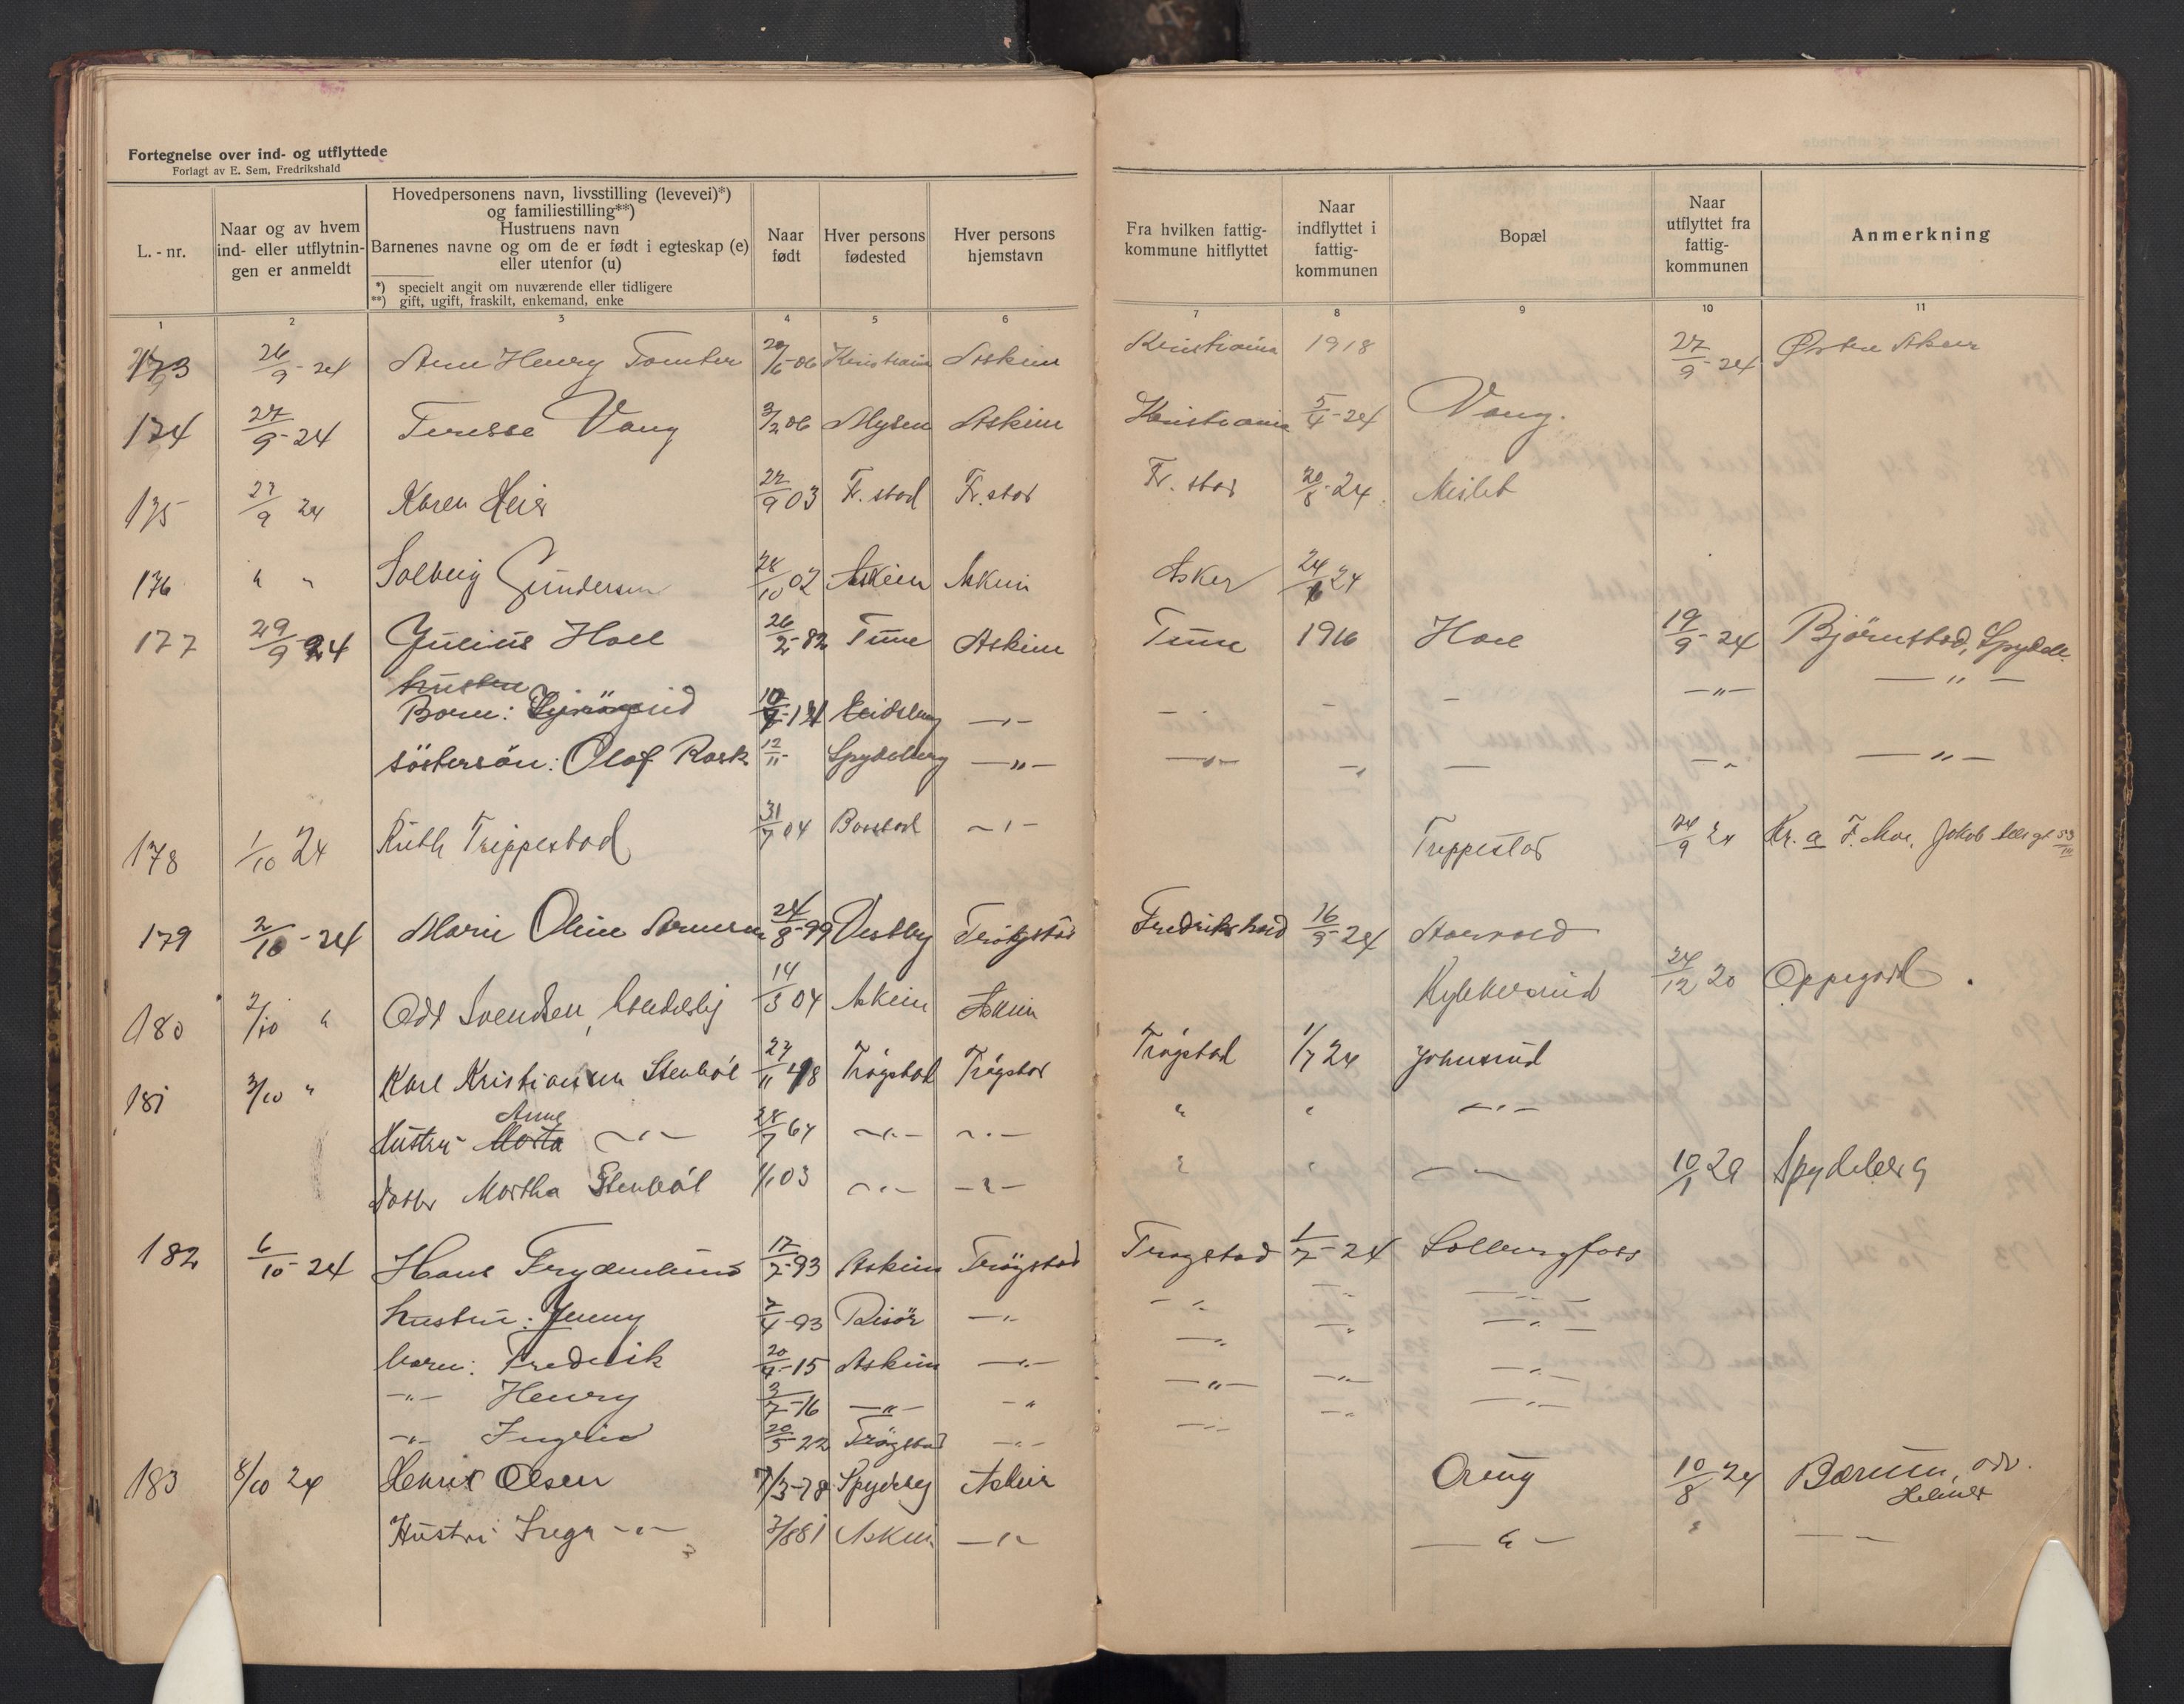 Fortegnelse over ind- og utflyttede
Forlagt av E. Sem, Fredrikshald
L. - nr.
Naar og av hvem
ind- eller utflytnin-
gen er anmeldt
Hovedpersonens navn, livsstilling (levevei)*)
og familiestilling**)
Hustruens navn
Barnenes navne og om de er født i egteskap (e)
eller utenfor (u)
*) specielt angit om nuværende eller tidligere
**) gift, ugift, fraskilt, enkemand, enke
Naar
født
Hver persons
fødested
Hver persons
hjemstavn
Fra hvilken fattig-
kommune hitflyttet
Naar
indflyttet i
fattig-
kommunen
Bopæl
Naar
utflyttet fra
fattig-
kommunen
Anmerkning
1 2 3 4 5 6 7 8 9 10 11
173 26/9-24 Henry Tomter 20/6-06 Kristiania Askim Kristiania 1918 27/9-24 Østre Aker
174 27/9-24 Teresse Vang 3/2 06 Mysen Askim Kristiania 5/4-24 Vang.
175 27/9 24 Karen Heir 22/9 03 Fr. stad Fr. stad Fr. stad 20/8-24
176 " " Solveig Gundersen 28/10 02 Askim Askim Asker 24/6 24
177 29/9 24 Julius Hoel 26/2-82 Tune Askim Tune 1916 Hoel 19/9-24 Bjørnstad, Spydeb.
hustru
Born: -"- -"- -"-
söstersön: Olaf Rask 12/11- Spydeberg -"- -"- -"- -"-
178 1/10 24 Ruth Trippestad 31/7 04 -"- Trippestad 24/9 24 Kr. a F. Moe, Jakob
179 2/10-24 Marie Oline 24/8-99 Vestby Trögstad Fredrikshald 16/9-24
180 2/10 " Odd Svendsen, 14/3 04 Askim Askim Kykkelsrud 24/12 20 Oppegård.
181 3/10 " Karl Kristiansen Stenbøl 27/11 Trøgstad Trøgstad Trøgstad 1/7 24 Johnsrud
Hustru Marta Anne -"- 28/7 67 -"- -"- " " -"-
Datter Martha Stenbøl 1/1 03 -"- -"- " " -"- 10/1 28 Spydeberg
182 6/10-24 Hans Frydenlund 17/7-93 Askim Trögstad Trögstad 1/7-24 Solbergfoss
hustru: Jenny 7/4-93 Risör -"- -"- -"- -"-
barn: Fredrik 20/4-15 Askim -"- -"- -"- -"-
-"- Henry 3/7-16 -"- -"- -"- -"- -"-
-"- Ingrid 20/5-22 Trögstad -"- -"- -"- -"-
183 8/10 24 Henrik Olsen 7/3-78 Spydebg Askim Oraug 10/8-24 Bærum,
Hustru Inga -"- 3/8 81 Askim -"- -"- " -"-